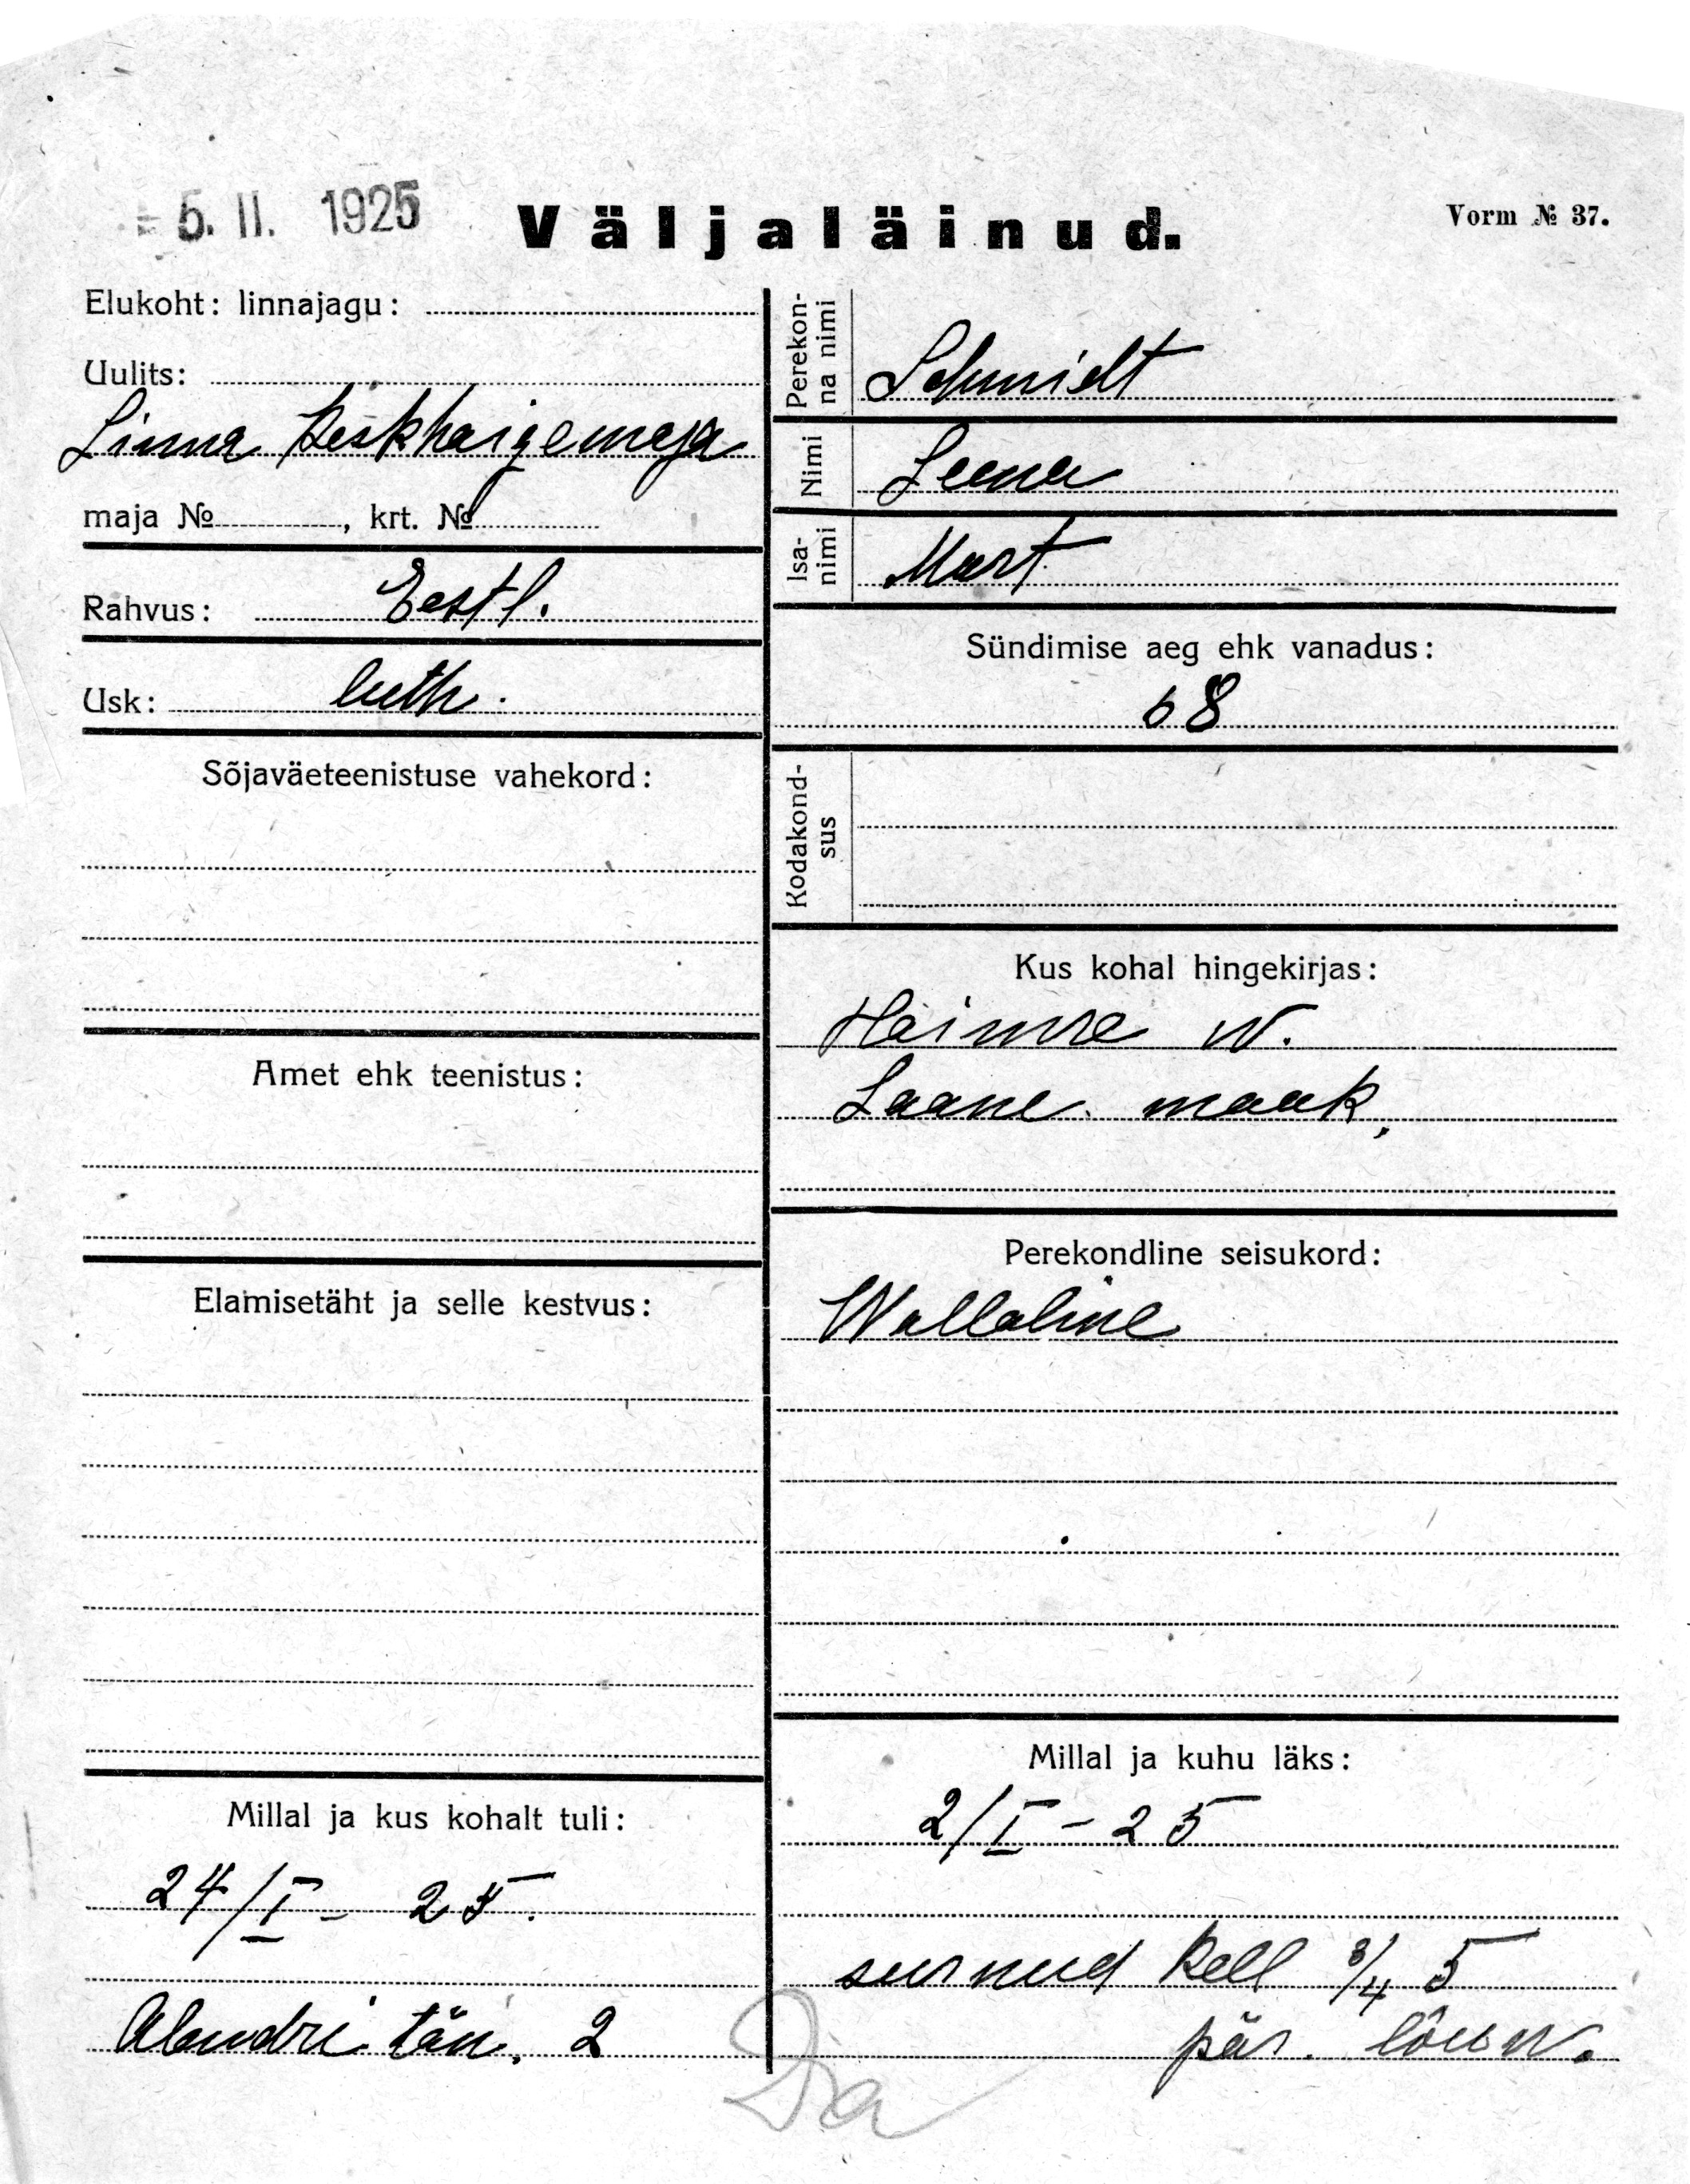 - 5. II. 1925
Väljaläinud.
Vorm № 37.
Elukoht: linnajagu:
Uulits:
Linna Keskhaigemaja
maja № , krt. №
Rahvus: Eestl.
Usk: luth.
Sõjaväeteenistuse vahekord:
Amet ehk teenistus:
Elamisetäht ja selle kestvus:
Millal ja kus kohalt tuli:
24/I - 25.
tän. 2
Perekon-
na nimi
Schmidt
Nimi Leena
Isa-
nimi
Mart
Sündimise aeg ehk vanadus:
68
Kodakond-
sus
Kus kohal hingekirjas:
W.
Lääne maak.
Perekondline seisukord:
Wallaline
Millal ja kuhu läks:
2/I - 25
surnud kell 3/4 5
pär. lõun.